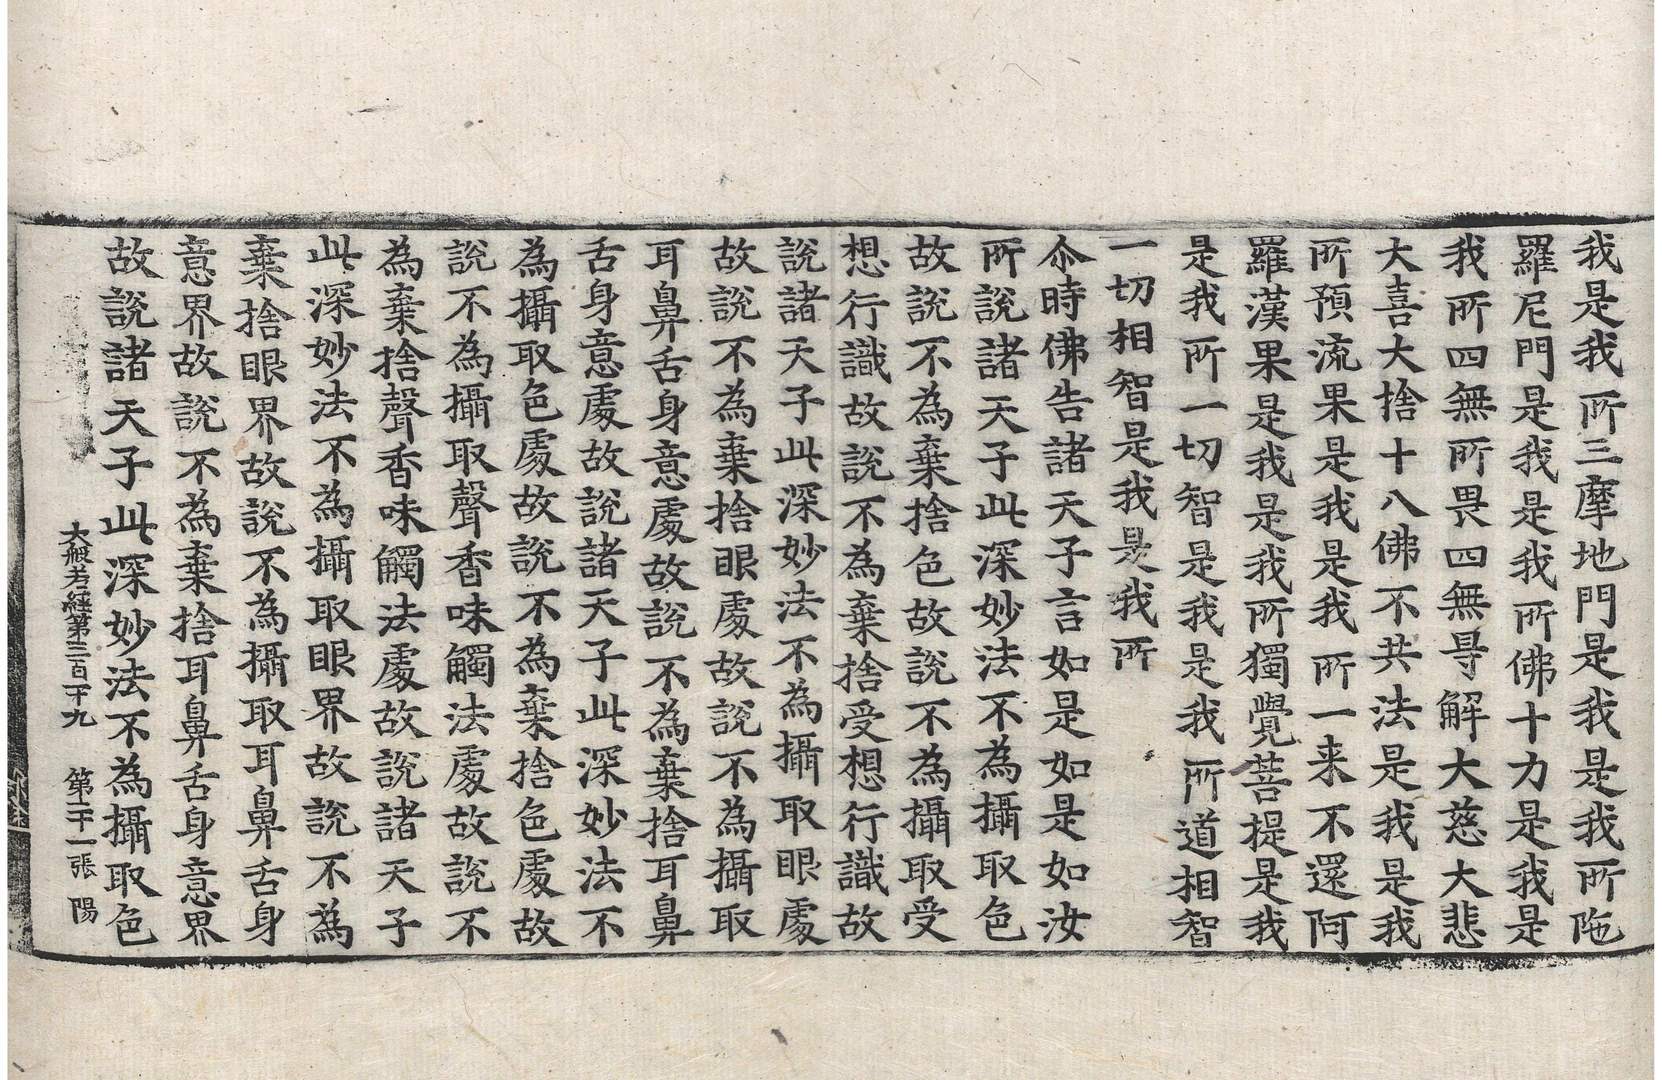 我是我所三摩地門是我是我所陁
羅尼門是我是我所佛十力是我是
我所四無所畏四無㝵解大慈大悲
大喜大捨十八佛不共法是我是我
所預流果是我是我所一来不還阿
羅漢果是我是我所獨覺菩提是我
是我所一切智是我是我所道相智
一切相智是我是我所
尒時佛告諸天子言如是如是如汝
所說諸天子此深妙法不為攝取色
故說不為棄捨色故說不為攝取受
想行識故說不為棄捨受想行識故
說諸天子此深妙法不為攝取眼處
故說不為棄捨眼處故說不為攝取
耳鼻舌身意處故說不為棄捨耳鼻
舌身意處故說諸天子此深妙法不
為攝取色處故說不為棄捨色處故
說不為攝取聲香味觸法處故說不
為棄捨聲香味觸法處故說諸天子
此深妙法不為攝取眼界故說不為
棄捨眼界故說不為攝取耳鼻舌身
意界故說不為棄捨耳鼻舌身意界
故說諸天子此深妙法不為攝取色
大般若經第三百一十九 第二十一張 陽